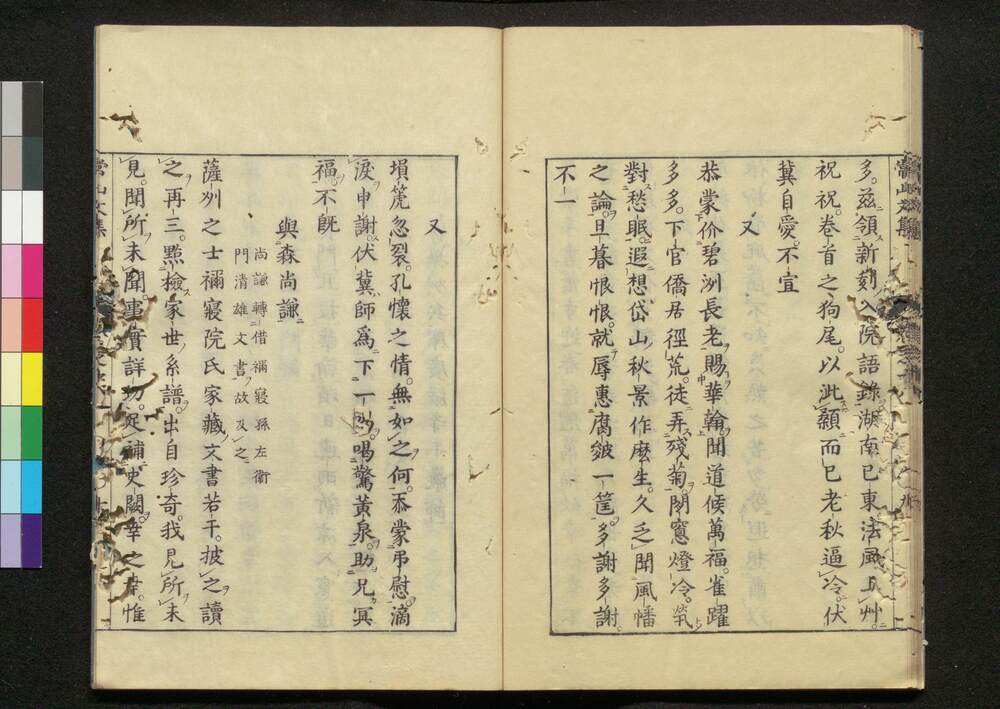 多。茲領新刻入院語錄。湖南已東。法風上艸。
祝祝。卷首之狗尾。以此額而已。老秋逼冷。伏
冀自愛。不宣
又
恭蒙价碧洲長老。賜華翰。聞道候萬福。雀躍
多多。下官僑居徑荒。徒弄殘菊。閉窻燈冷。煢
對愁眠。遐想岱山。秋景作麼生。久乏聞風幡
之論。旦暮恨恨。就辱惠腐皴一筐。多謝多謝。
不一
又
塤箎忽裂。孔懷之情。無如之何。忝蒙弔慰。滴
淚申謝。伏冀師爲下一喝。驚黃泉。助兄冥
福。不旣
與森尚謙
尚謙轉借禰寢孫左衞
門清雄文書。故及之
薩刕之士禰寢院氏家藏文書若干。披之讀
之再三。㸃檢家世系譜。出自珍奇。我見所未
見。聞所未聞。事實詳切。足補史闕。幸之幸。惟
常山文集